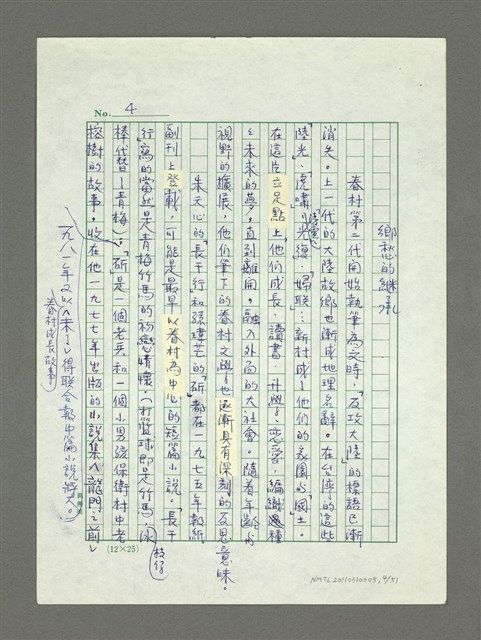 No. 4
鄉愁的繼承
眷村第二代開始執筆為文時,「反攻大陸」的標語已漸
消失。上一代的大陸故鄉也漸成地理名辭。在台灣的這些
「陸光、虎嘯、凌雲、光復、婦聯…新村成了他們的家園「國」土。
在這片立足點上他們成長、讀書、升學、戀愛、編織種種
未來的夢。直到離開。融入外面的大社會。隨着年齡與
視野的擴展,他們筆下的眷村文學也逐漸具有深刻的反思意味。
朱天心的「長干行」和孫瑋芒的「斫」都在一九七五年報紙
副刊上登載,可能是最早以眷村為中心的短篇小說。「長干
行」寫的當然是青梅竹馬的初戀情懷(打籃球即是竹馬,冰
棒代替了青梅);「斫」是一個老兵和一個小男孩保衛村中老
榕樹的故事。收在他一九七七年出版的小說集《龍門之前》
枝仔
一九八二年又以《未了》得聯合報中篇小說獎。
眷村成長故事
(12×25)
NMTL20110310005, 4/51